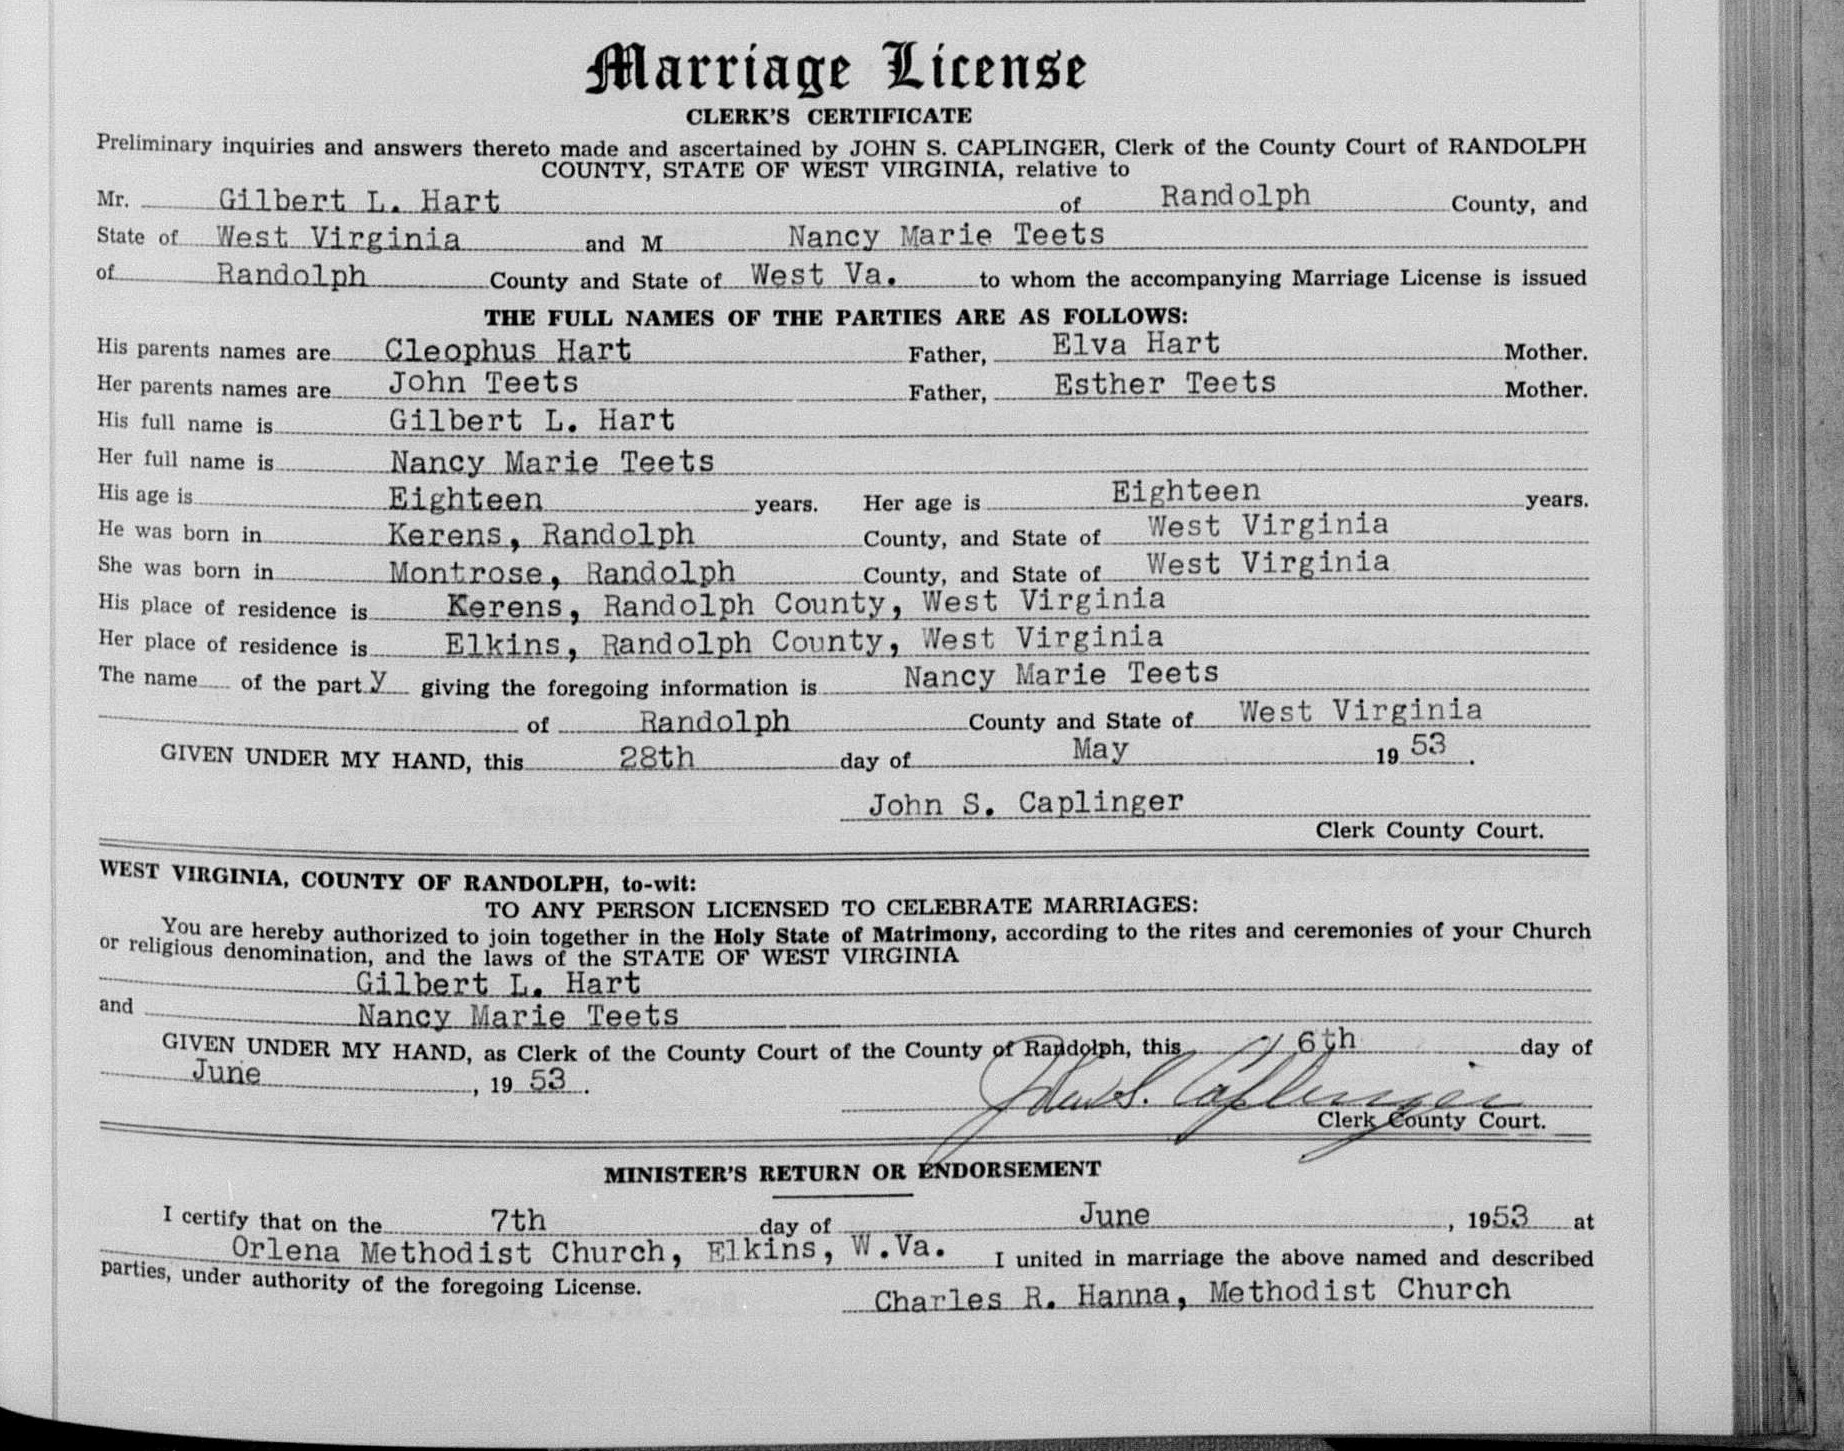 Marriage License
CLERK'S CERTIFICATE
Preliminary inquiries and answers thereto made and ascertained by JOHN S. CAPLINGER, Clerk of the County Court of RANDOLPH
COUNTY, STATE OF WEST VIRGINIA, relative to
Mr. Gilbert L. Hart of Randolph County, and
State of West Virginia and M Nancy Marie Teets
of Randolph County and State of West Va. to whom the accompanying Marriage License is issued
THE FULL NAMES OF THE PARTIES ARE AS FOLLOWS:
His parents names are Cleophus Hart Father, Elva Hart Mother.
Her parents names are John Teets Father, Esther Teets Mother.
His full name is Gilbert L. Hart
Her full name is Nancy Marie Teets
His age is Eighteen years. Her age is Eighteen years.
He was born in Kerens, Randolph County, and State of West Virginia
She was born in Montrose, Randolph County, and State of West Virginia
His place of residence is Kerens, Randolph County, West Virginia
Her place of residence is Elkins, Randolph County, West Virginia
The name of the party giving the foregoing information is Nancy Marie Teets
of Randolph County and State of West Virginia
GIVEN UNDER MY HAND, this 28th day of May 1953.
John S. Caplinger
Clerk County Court.
WEST VIRGINIA, COUNTY OF RANDOLPH, to-wit:
TO ANY PERSON LICENSED TO CELEBRATE MARRIAGES:
You are hereby authorized to join together in the Holy State of Matrimony, according to the rites and ceremonies of your Church
or religious denomination, and the laws of the STATE OF WEST VIRGINIA
Gilbert L. Hart
and Nancy Marie Teets
GIVEN UNDER MY HAND, as Clerk of the County Court of the County of Randolph, this 6th day of
June, 1953.
John S. Caplinger
Clerk County Court.
MINISTER'S RETURN OR ENDORSEMENT
I certify that on the 7th day of June, 1953 at
Orlena Methodist Church, Elkins, W.Va. I united in marriage the above named and described
parties, under authority of the foregoing License.
Charles R. Hanna, Methodist Church